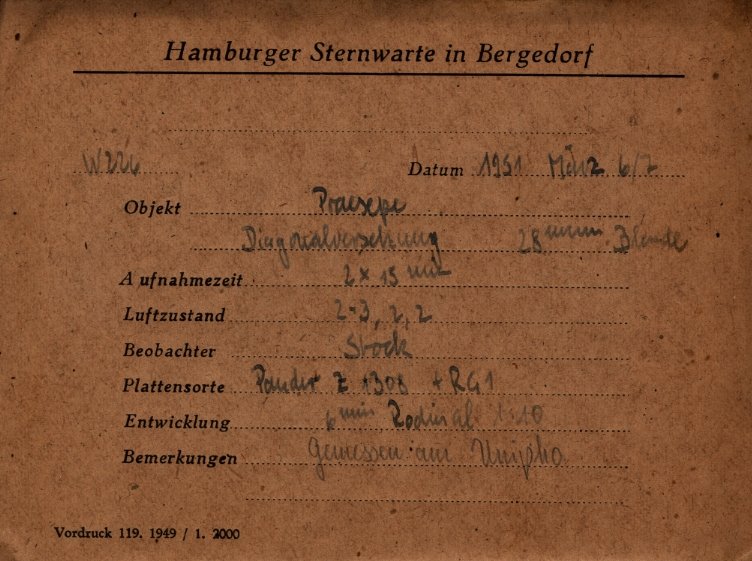 Hamburger Sternwarte in Bergedorf
W226 Datum 1951 März 6/7
Objekt Praesepe
Diagonalversetzung 28 mm Blende
Aufnahmezeit 2 × 15 min
Luftzustand 2-3, 2, 2
Beobachter Stock
Plattensorte Z 1308 + RG1
Entwicklung 6 min Rodinal 1:10
Bemerkungen Gemessen am
Vordruck 119. 1949 / 1. 2000